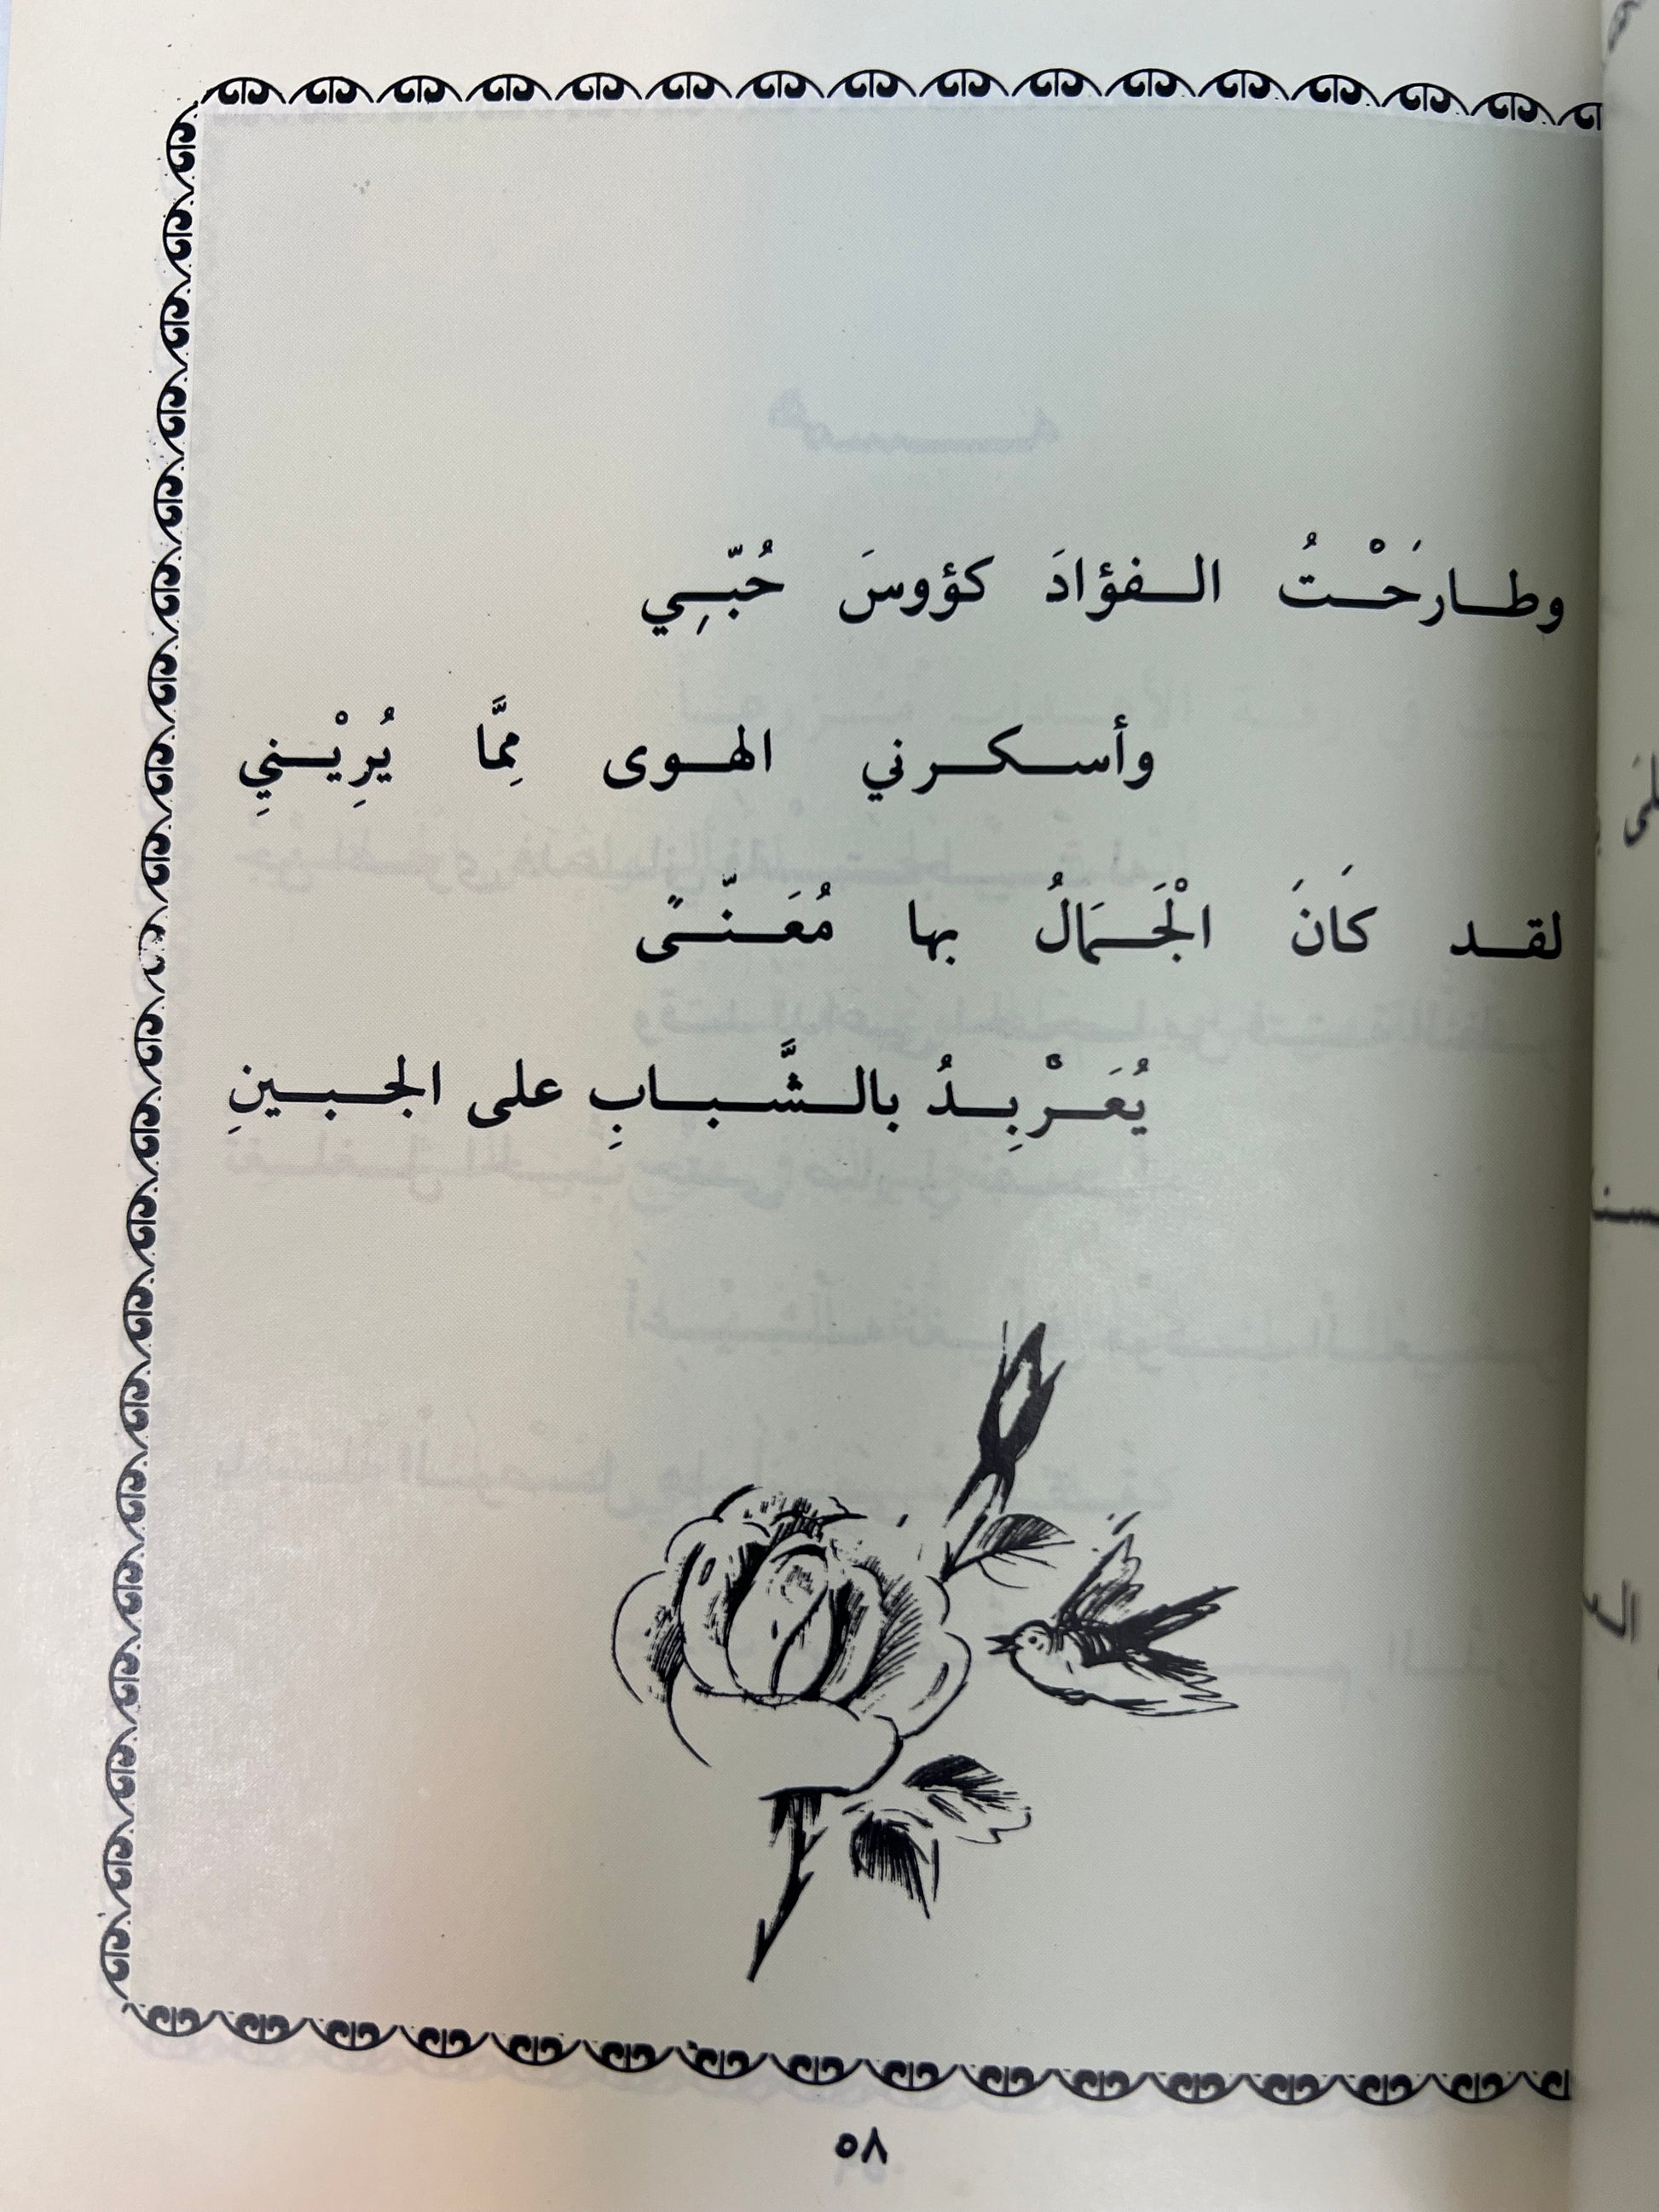 وطارَحْتُ الفؤادَ كؤوسَ حُبّي
وأسكرني الهوى مِمَّا يُرِيْنيِ
لقد كَانَ الْجَمَالُ بها مُعَنّىً
يُعَرْبِدُ بالشَّبابِ على الجبينِ
٥٨